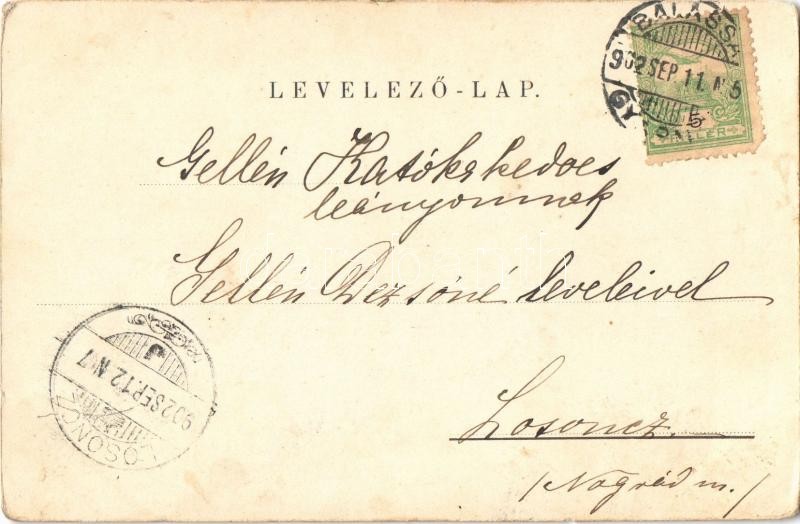 LEVELEZŐ-LAP.
BALASSA
902 SEP 11. N 5
5
FILLÉR
Gellén Katóka kedves
leányomnak
Gellén Dezsőné leveleivel
Losoncz.
/Nográd m./
LOSONCZ
902 SEP. 12 N 7